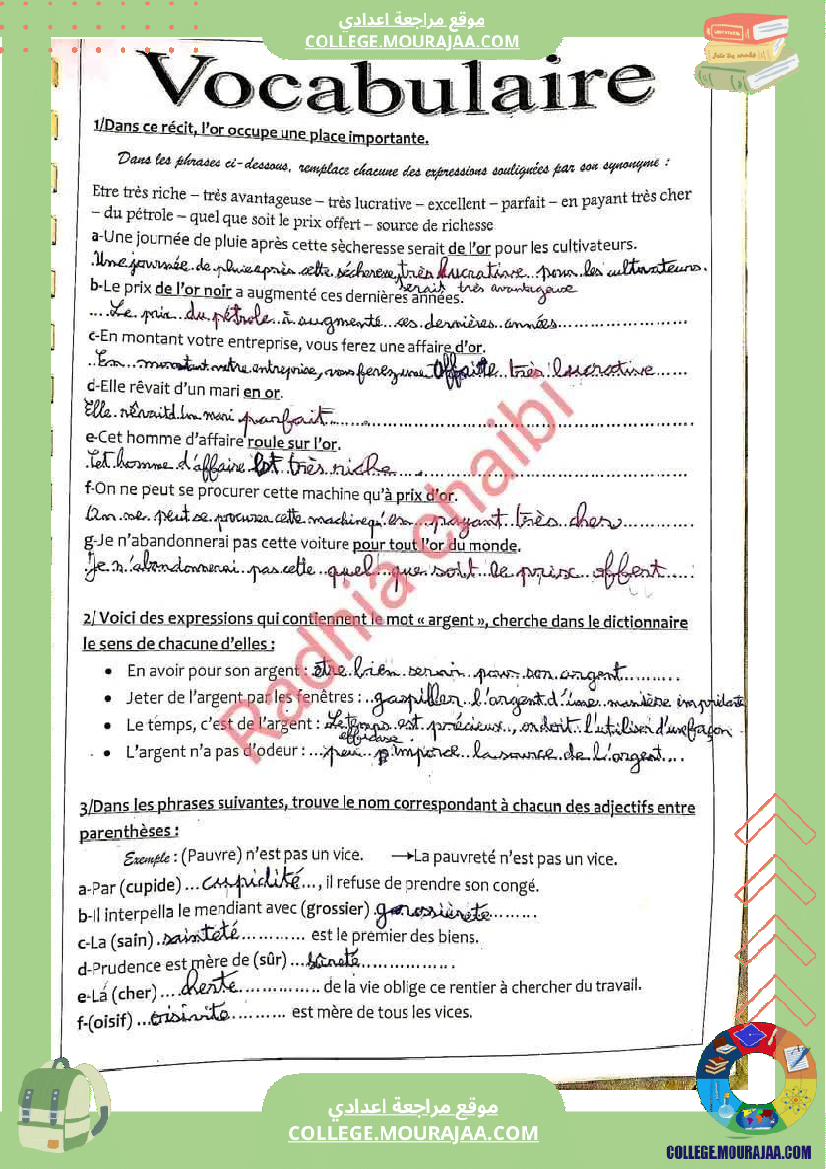 موقع مراجعة اعدادي
COLLEGE.MOURAJAA.COM
Vocabulaire
1/Dans ce récit, l'or occupe une place importante.
Dans les phrases ci-dessous, remplace chacune des expressions soulignées par son synonyme :
Etre très riche – très avantageuse – très lucrative – excellent – parfait – en payant très cher
– du pétrole – quel que soit le prix offert – source de richesse
a-Une journée de pluie après cette sècheresse serait de l'or pour les cultivateurs.
Une journée de pluie après cette sécheresse, très lucrative pour les cultivateurs.
serait très avantageuse
b-Le prix de l'or noir a augmenté ces dernières années.
Le prix du pétrole à augmenté ces dernières années
c-En montant votre entreprise, vous ferez une affaire d'or.
En montant votre entreprise, vous ferez une affaire très lucrative
d-Elle rêvait d'un mari en or.
Elle rêvait d'un mari parfait
e-Cet homme d'affaire roule sur l'or.
Cet homme d'affaire est très riche
f-On ne peut se procurer cette machine qu'à prix d'or.
On ne peut se procurer cette machine qu'en payant très cher
g-Je n'abandonnerai pas cette voiture pour tout l'or du monde.
Je n'abandonnerai pas cette quel que soit le prix offert
2/ Voici des expressions qui contiennent le mot « argent », cherche dans le dictionnaire
le sens de chacune d'elles :
• En avoir pour son argent : être bien servir pour son argent
• Jeter de l'argent par les fenêtres : gaspiller l'argent d'une manière
• Le temps, c'est de l'argent : Le temps est précieux, on doit l'utiliser d'une façon
• L'argent n'a pas d'odeur : peu importe la source de l'argent
3/Dans les phrases suivantes, trouve le nom correspondant à chacun des adjectifs entre
parenthèses :
Exemple : (Pauvre) n'est pas un vice. →La pauvreté n'est pas un vice.
a-Par (cupide) ...cupidité..., il refuse de prendre son congé.
b-Il interpella le mendiant avec (grossier) .grossièreté.........
c-La (sain) .sainteté............ est le premier des biens.
d-Prudence est mère de (sûr) ...sûreté................
e-La (cher) ....cherte............... de la vie oblige ce rentier à chercher du travail.
f-(oisif) ...oisivite.......... est mère de tous les vices.
Radhia chaibi
موقع مراجعة اعدادي
COLLEGE.MOURAJAA.COM
COLLEGE.MOURAJAA.COM